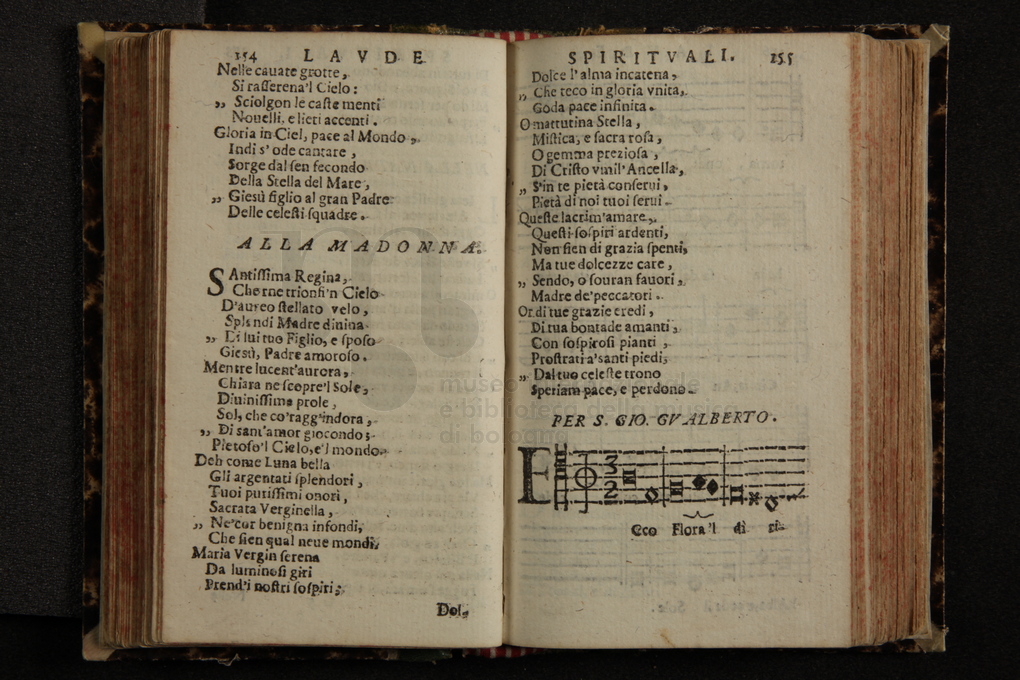 154 LAVDE
Nelle cauate grotte,
Si rasserena'l Cielo:
„ Sciolgon le caste menti
Nouelli, e lieti accenti.
Gloria in Ciel, pace al Mondo,
Indi s'ode cantare,
Sorge dal sen fecondo
Della Stella del Mare,
„ Giesù figlio al gran Padre
Delle celesti squadre.
ALLA MADONNA.
SAntissima Regina,
Che ne trionfi'n Cielo
D'aureo stellato velo,
Splendi Madre diuina
„ Di lui tuo Figlio, e sposo
Giesù, Padre amoroso.
Mentre lucent'aurora,
Chiara ne scopre'l Sole,
Diuinissima prole,
Sol, che co'raggi indora,
„ Di sant'amor giocondo;
Pietoso'l Cielo, e'l mondo.
Deh come Luna bella
Gli argentati splendori,
Tuoi purissimi onori,
Sacrata Verginella,
„ Ne'cor benigna infondi,
Che sien qual neue mondi.
Maria Vergin serena
Da luminosi giri
Prend'i nostri sospiri;
Dol-
SPIRITVALI. 255
Dolce l'alma incatena,
„ Che teco in gloria vnita,
Goda pace infinita.
O mattutina Stella,
Mistica, e sacra rosa,
O gemma preziosa,
Di Cristo vmil'Ancella,
„ S'in te pietà conserui,
Pietà di noi tuoi serui.
Queste lacrim'amare,
Questi sospiri ardenti,
Non sien di grazia spenti,
Ma tue dolcezze care,
„ Sendo, o souran fauori,
Madre de'peccatori.
Or di tue grazie eredi,
Di tua bontade amanti,
Con sospirosi pianti,
Prostrati a'santi piedi,
„ Dal tuo celeste trono
Speriam pace, e perdono.
PER S. GIO. GVALBERTO.
E
cco Flora'l dì ri-
museo
e biblioteca della musica
di bologna